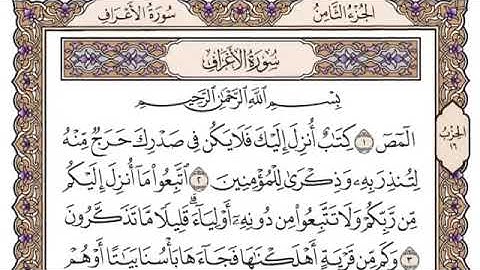 سُورَةُ الأَعْرَافِ
الجُزْءُ الثَّامِنُ
سُورَةُ الأَعْرَافِ
بِسْمِ ٱللَّهِ ٱلرَّحْمَٰنِ ٱلرَّحِيمِ
الٓمٓصٓ ١ كِتَٰبٌ أُنزِلَ إِلَيْكَ فَلَا يَكُن فِى صَدْرِكَ حَرَجٌ مِّنْهُ
لِتُنذِرَ بِهِۦ وَذِكْرَىٰ لِلْمُؤْمِنِينَ ٢ ٱتَّبِعُوا۟ مَآ أُنزِلَ إِلَيْكُم
مِّن رَّبِّكُمْ وَلَا تَتَّبِعُوا۟ مِن دُونِهِۦٓ أَوْلِيَآءَ ۗ قَلِيلًا مَّا تَذَكَّرُونَ
٣ وَكَم مِّن قَرْيَةٍ أَهْلَكْنَٰهَا فَجَآءَهَا بَأْسُنَا بَيَٰتًا أَوْ هُمْ
الحِزْبُ
١٦